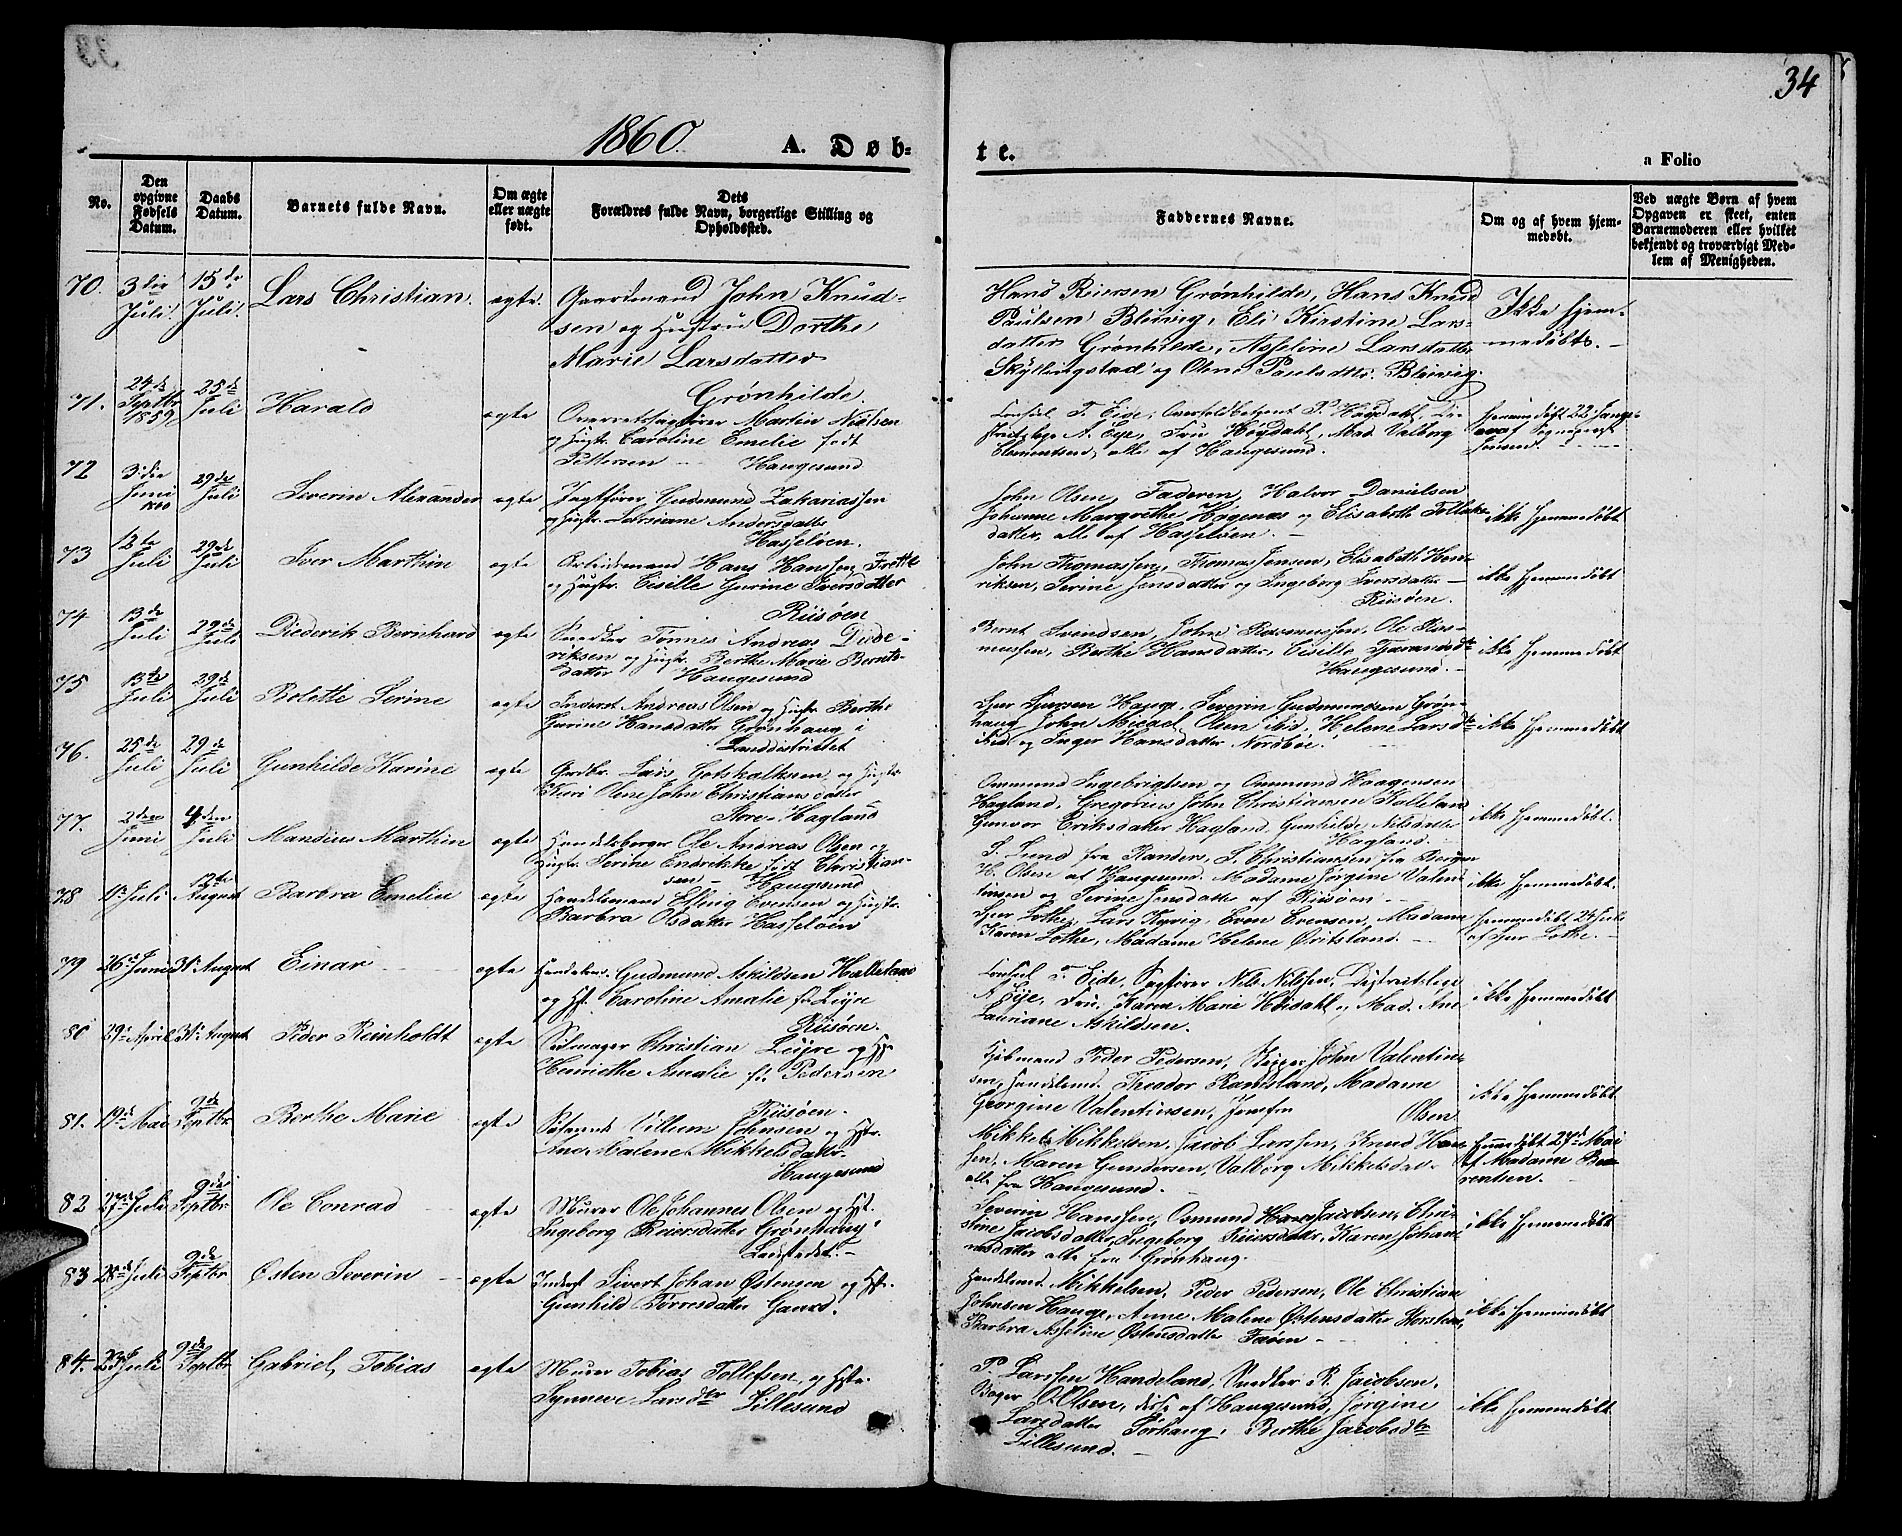 34
1860.
A. Døb-
te.
a Folio
No.
Den opgivne Fødsels Datum.
Daabs Datum.
Barnets fulde Navn.
Om ægte eller uægte født.
Dets Forældres fulde Navn, borgerlige Stilling og Opholdssted.
Faddernes Navne.
Om og af hvem hjemmedøbt.
Ved uægte Børn af hvem Opgaven er skeet, enten Barnemoderen eller hvilket bekjendt og troværdigt Medlem af Menigheden.
70. 3die Juli. 15de Juli. Lars Christian. ægte. Gaardmand John Knud-
sen og Hustru Dorthe
Marie Larsdatter
Grønhilde.
Hans Reiersen Grønhilde, Hans Knud
Paulsen Bleivig, Eli Kirstine Lars-
datter Grønhilde, Asseline Larsdatter
Skyllingstad og Oline Paulsdatter Bleivig.
Ikke hjem-
medøbt.
71. 24de Septbr 1859 25de Juli Harald ægte Overretssagfører Martin Nielsen
og Hustr. Caroline Emelie født
Pettersen Haugesund
Consul T. Eide, P. Høgdahl, Di-
A. Eye, Fru Høgdahl, Mad. Valborg
Clementsen, alle af Haugesund.
hjemmedøbt 22
72 3die Juni 1860 29de Juli Severin Alexander ægte Jagtfører Gudmund Zakariassen
og Hustr. Larsiane Andersdatter
Hasseløen.
John Olsen, Faderen, Halvor Danielsen
Johanne Margrethe Høgenæs og Elisabeth
datter, alle af Hasseløen.
ikke hjemmedøbt
73 12te Juli 29de Juli Iver Marthin ægte Arbeidsmand Hans Hanssen
og Hustr. Cisille Gurine Iversdatter
Riisøen
John Thomassen, Thomas Jensen, Elisabeth Hen-
riksen, Serine Jensdatter og Ingeborg Iversdatter
Riisøen.
ikke hjemmedøbt
74 13de Juli 29de Juli Diederik Bernhard ægte Snedker Tønnes Andreas Diede-
riksen og Hustr. Berthe Marie Bernts-
datter Haugesund
Bernt Svendsen, John Rasmussen, Ole Ras-
mussen, Berthe Hansdatter, Cisille
Haugesund.
ikke hjemmedøbt
75 15de Juli 29de Juli Bolette Serine ægte Inderst Andreas Olsen og Hustr. Berthe
Gurine Hansdatter Grønhaug i
Landdistriktet
Sjur Sjursen Hauge, Severin Gudmundsen Grøn-
haug, John Micael Olsen ibid, Helene Larsdtr
ibid og Inger Hansdatter Nordbøe.
ikke hjemmedøbt
76. 25de Juli 29de Juli Gunhilde Karine ægte Gaardbr. Lars Gotskalksen og Hustr.
Siri Olene John Christiansdatter
Store Hagland
Ommund Ingebrigtsen og Ommund Haagensen
Hagland, Gregorius John Christiansen
Gunvor Eriksdatter Hagland, Gunhilde Nilsdatter
Hagland.
ikke hjemmedøbt.
77. 2den Juni 4den Juli Mandius Marthin ægte Handelsborger Ole Andreas Olsen og
Hustr. Serine Endrikke født Christian-
sen Haugesund
S. Lund fra Randers, S. Christiansen fra Bergen
H. Olsen af Haugesund. Madame Jørgine Valen-
tinsen og Serine Jensdatter af Riisøen.
ikke hjemmedøbt.
78 Juli 12te August Barbra Emelie ægte Handelsmand Elling Evensen og Hustr.
Barbra Olsdatter Hasseløen
Sjur Lothe, Lars Kyvig, Even Evensen, Madame
Karen Lothe, Madame Helene Øritsland.
hjemmedøbt 24 Juli
af Sjur Lothe.
79 26de Juni 31te August Einar ægte Handelsm. Gudmund Askildsen Helleland
og Hst. Caroline Amalie f. Leyre
Riisøen.
Consul T. Eide, Sagfører Nils Nilssen, Districtslæge
A. Eye, Fru Karen Marie og Mad. Ane
Lauriane Askildsen.
ikke hjemmedøbt
80 29de April 31te August Peder Reinholdt ægte Seilmager Christian Leyre og Hst.
Henriethe Amalie f. Pedersen
Riisøen.
Peder Pedersen, Skipper John Valentin-
sen, Handelsmd. Theodor Madame
Georgine Valentinsen, Josefa Olsen
ikke hjemmedøbt
81. 19de Mai 9de Septbr. Berthe Marie ægte Villum Johnsen og Hst.
Ane Malene Mikkelsdatter
Haugesund
Mikkel Mikkelsen, Jacob Larssen, Knud Han-
sen, Maren Gundersen, Valborg Mikkelsdat.
alle fra Haugesund.
Hjemmedøbt 27de Mai
af Madame Be-
rentsen.
82 27de Juli 9de Septbr. Ole Conrad ægte Murer Ole Johannes Olsen og Hst.
Ingeborg Reiersdatter Grønhaug
Severin Hanssen, Osmund Jacobsen, Chri-
stine Jacobsdatter, Ingeborg Reiersdatter, Karen Johan-
nesdatter alle fra Grønhaug.
ikke hjemmedøbt
83 28de Juli 9de Septbr. Østen Severin ægte Inderst Sivert Johan Østensen og Hst.
Gunhild Torresdatter Gaard.
Handelsmd. Mikkelsen, Peder Pedersen, Ole Christian
Johnsen Hauge, Anne Malene Østensdatter
Barbra Asseline Østensdatter Føøen
ikke hjemmedøbt
84. Juli 9de Septbr. Gabriel Tobias ægte Murer Tobias Tollefsen og Hst.
Synneve Larsdtr Lillesund
P. Larssen Handeland, Snedker R. Jacobsen.
Bager O. Olsen, disse af Haugesund, Jørgine
Larsdatter Sørhaug, Berthe Jacobsdtr
Lillesund.
ikke hjemmedøbt